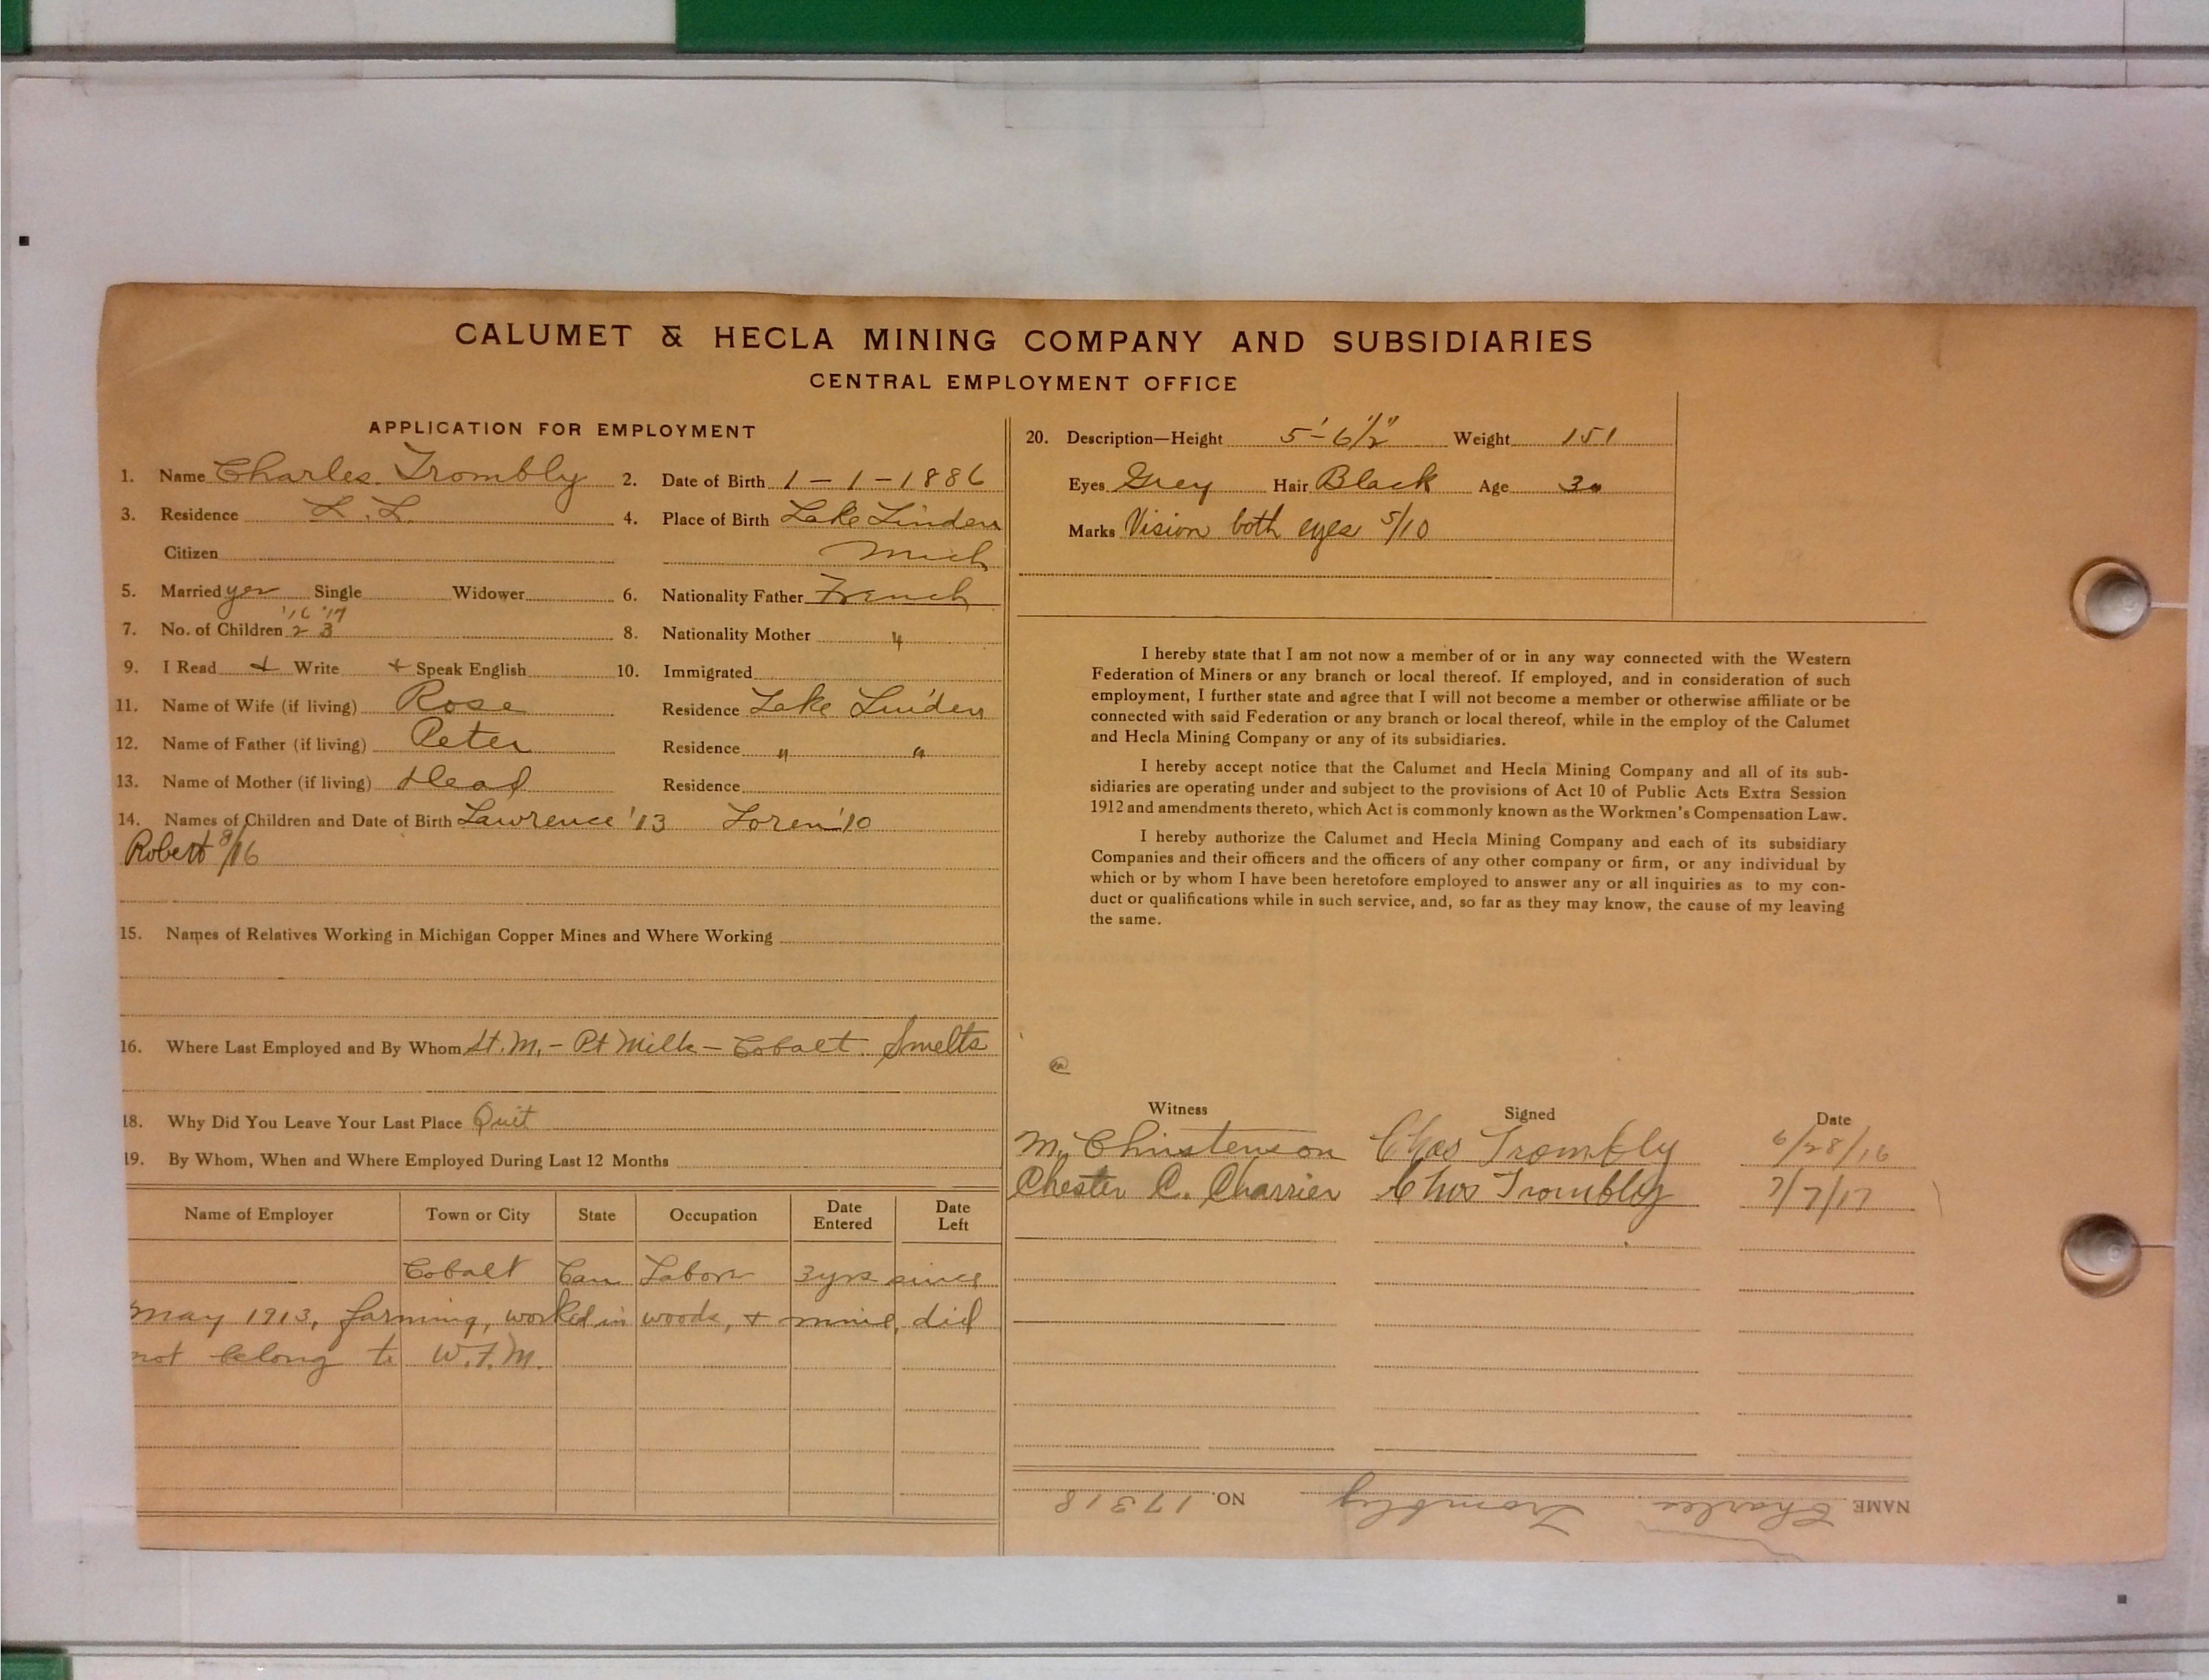 CALUMET & HECLA MINING COMPANY AND SUBSIDIARIES
CENTRAL EMPLOYMENT OFFICE
APPLICATION FOR EMPLOYMENT
1. Name Charles Trombly 2. Date of Birth 1-1-1886
3. Residence L.L. 4. Place of Birth Lake Linden
Citizen Mich
5. Married yes Single Widower 6. Nationality Father French
'16 '17
7. No. of Children 2 3 8. Nationality Mother "
9. I Read + Write + Speak English 10. Immigrated
11. Name of Wife (if living) Rose Residence Lake Linden
12. Name of Father (if living) Peter Residence " "
13. Name of Mother (if living) Dead Residence
14. Names of Children and Date of Birth Lawrence '13 Loren '10
Robert 9/16
15. Names of Relatives Working in Michigan Copper Mines and Where Working
16. Where Last Employed and By Whom St. M. - Pt Mills - Cobalt Smelts
18. Why Did You Leave Your Last Place Quit
19. By Whom, When and Where Employed During Last 12 Months
Name of Employer Town or City State Occupation Date Entered Date Left
Cobalt Can Labor 3yrs since
May 1913, farming, worked in woods, + mine, did
not belong to W.F.M.
20. Description—Height 5'-6½" Weight 151
Eyes Grey Hair Black Age 30
Marks Vision both eyes 5/10
I hereby state that I am not now a member of or in any way connected with the Western
Federation of Miners or any branch or local thereof. If employed, and in consideration of such
employment, I further state and agree that I will not become a member or otherwise affiliate or be
connected with said Federation or any branch or local thereof, while in the employ of the Calumet
and Hecla Mining Company or any of its subsidiaries.
I hereby accept notice that the Calumet and Hecla Mining Company and all of its sub-
sidiaries are operating under and subject to the provisions of Act 10 of Public Acts Extra Session
1912 and amendments thereto, which Act is commonly known as the Workmen's Compensation Law.
I hereby authorize the Calumet and Hecla Mining Company and each of its subsidiary
Companies and their officers and the officers of any other company or firm, or any individual by
which or by whom I have been heretofore employed to answer any or all inquiries as to my con-
duct or qualifications while in such service, and, so far as they may know, the cause of my leaving
the same.
Witness Signed Date
M. Christenson Chas Trombly 6/28/16
Chester C. Charrier Chas Trombly 7/7/17
NAME Charles Trombly NO. 17318